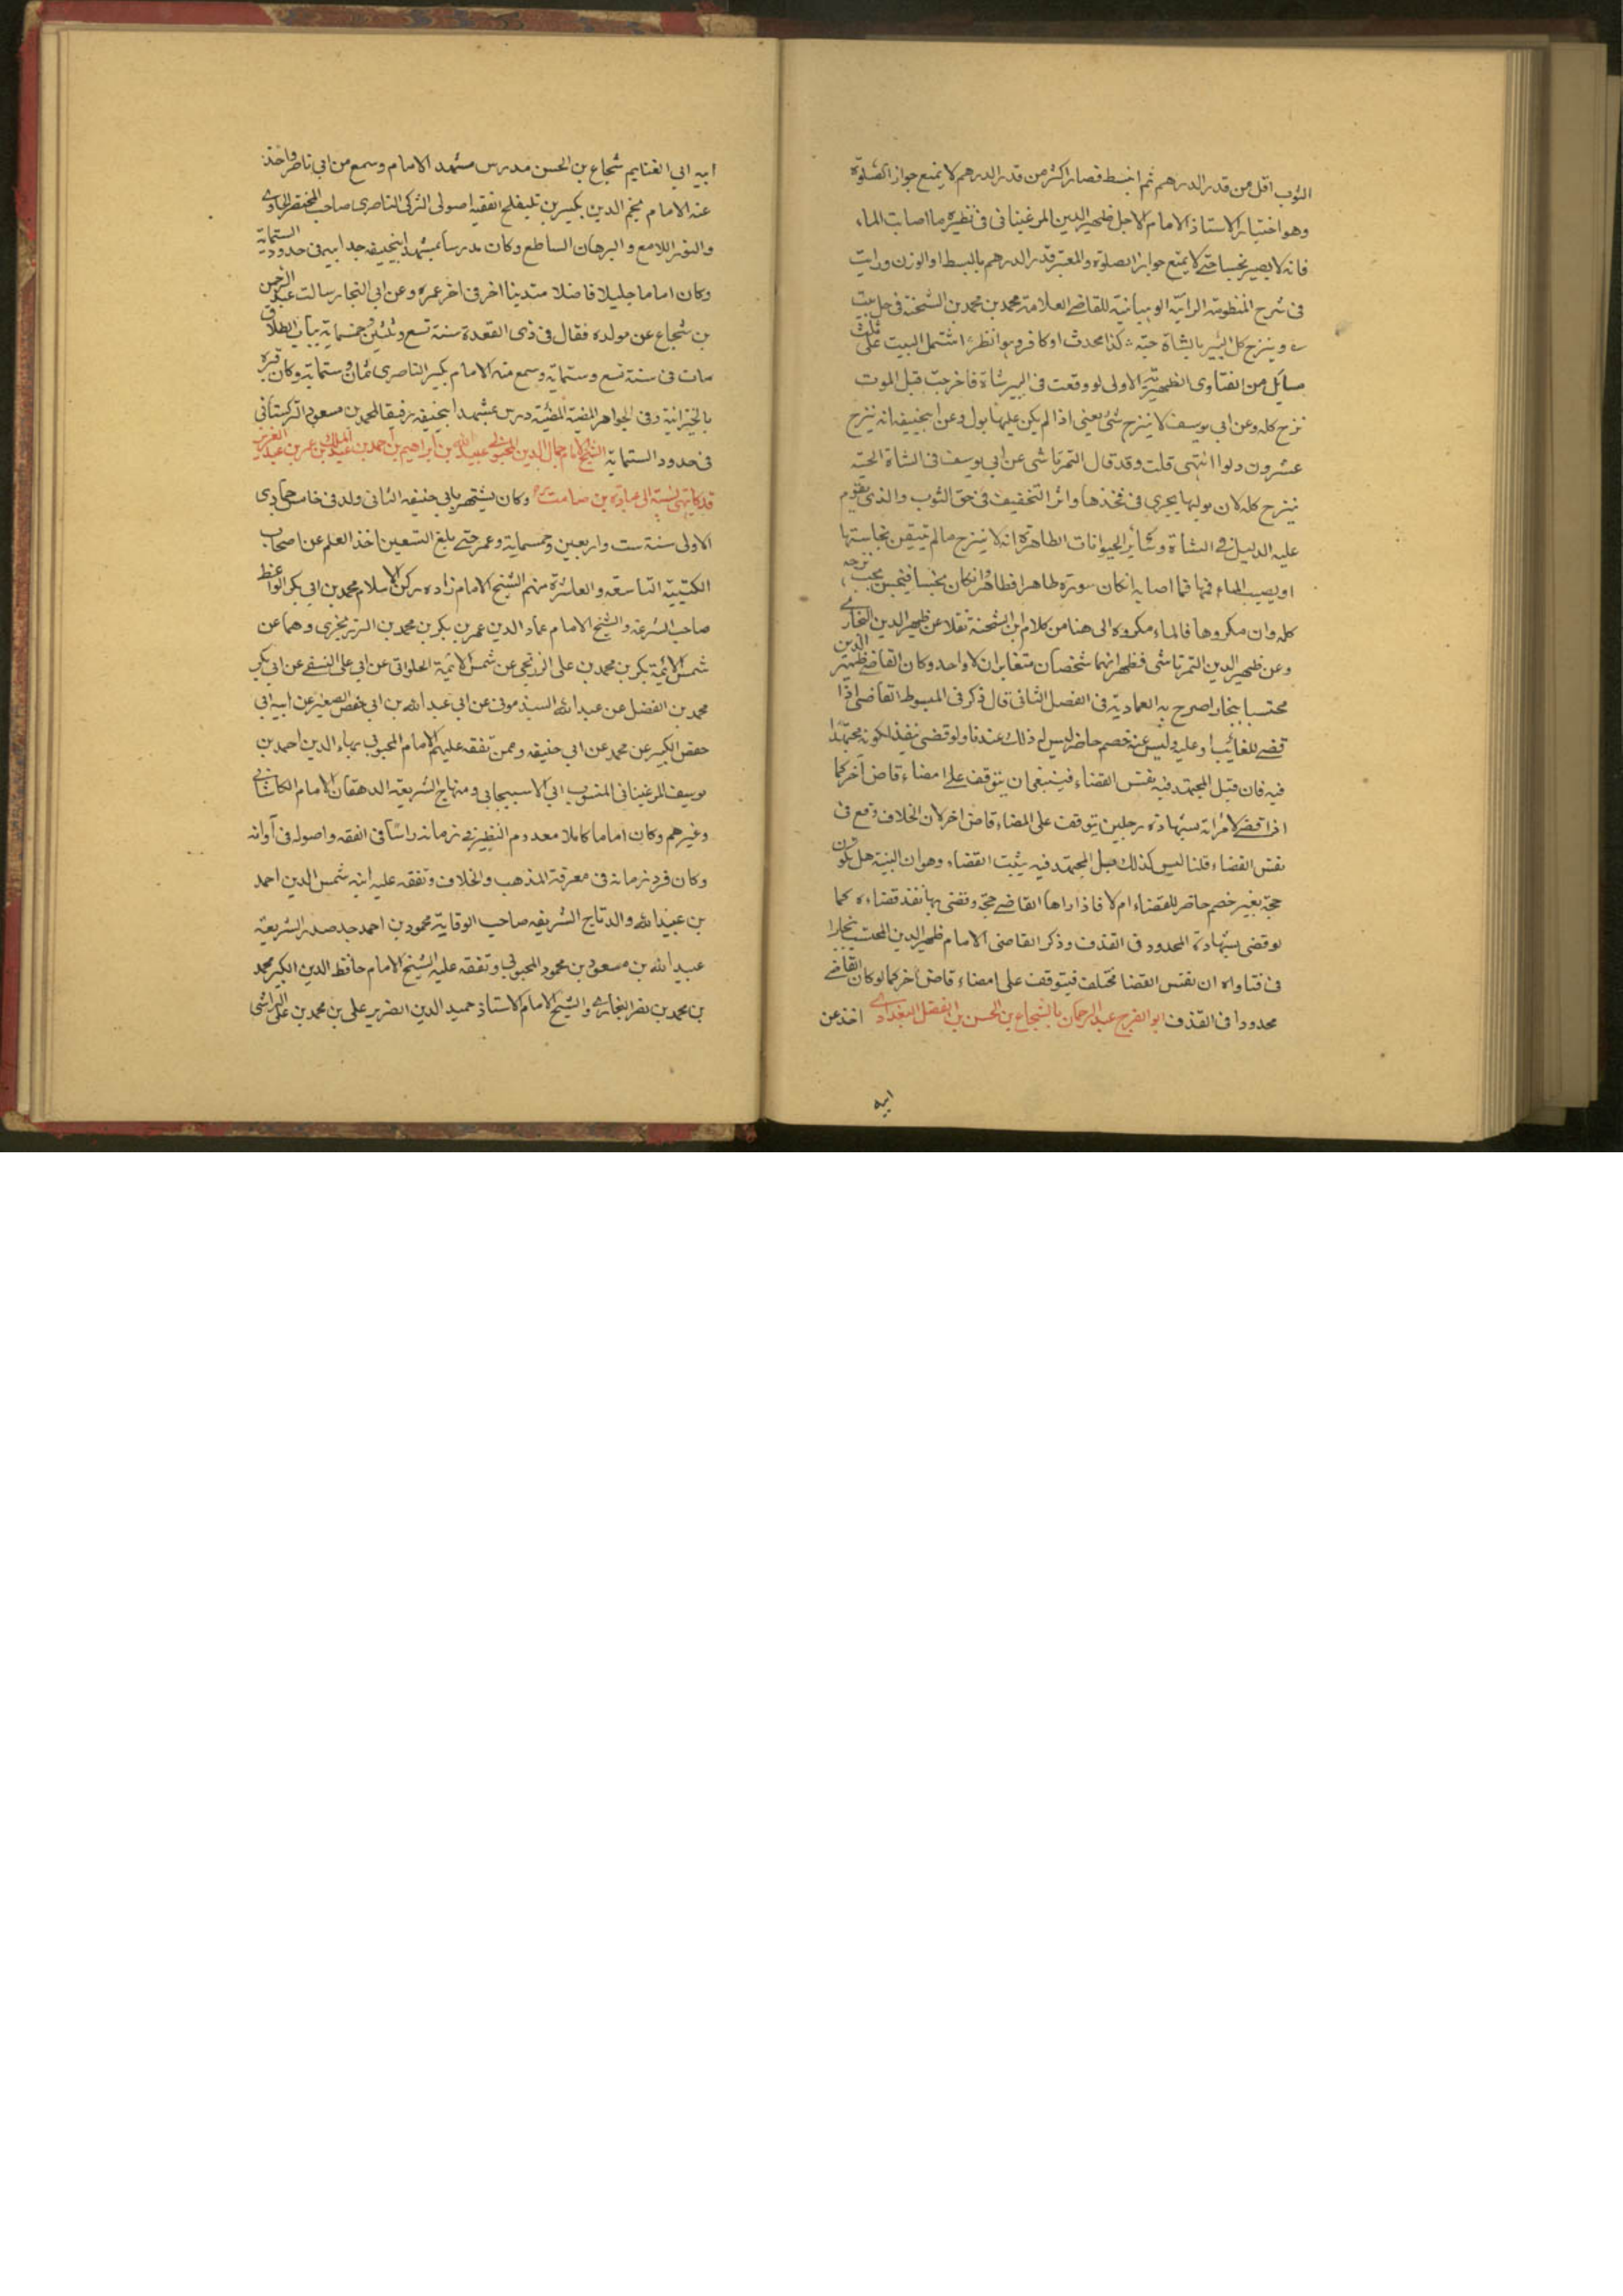 الثوب اقل من قدر الدرهم ثم انبسط فصار اكثر من قدر الدرهم لا يمنع جواز الصلوة
وهو اختيار الاستاذ الامام الاجل ظهير الدين المرغينانى فى نظيره ما اصابت الماء
فانه لا يصير نجسا حتى لا يمنع جواز الصلوة والمعتبر قدر الدرهم بالبسط او الوزن ورايت
فى شرح المنظومة الرائية الوهبانية للقاضى العلامة محمد بن محمد بن الشحنة فى حل بيت
وينزح كل البير بالشاة حية كذا محدث او كافر وانظر اشتمل البيت على ثلث
مسايل من الفتاوى الظهيرية الاولى لو وقعت فى البير شاة فاخرجت قبل الموت
نزح كله وعن ابى يوسف لا ينزح شئ يعنى اذا لم يكن عليها بول وعن ابيحنيفه انه ينزح
عشرون دلوا انتهى قلت وقد قال التمرتاشى عن ابى يوسف فى الشاة الحية
ينزح كله لان بولها يجرى فى فخذها واثر التخفيف فى حق الثوب والذى يقوم
عليه الدليل فى الشاة وسائر الحيوانات الطاهرة انه لا ينزح ما لم تتيقن نجاستها
او يصيب الماء فمها فما اصابه ان كان سوره طاهرا فطاهر وان كان نجسا فنجس يجب نزحه
كله وان مكروها فالماء مكروه الى هنا من كلام ابن الشحنة نقلا عن ظهير الدين البخارى
وعن ظهير الدين التمرتاشى فظهر انهما شخصان متغايران لا واحد وكان القاضى ظهير الدين
محتسبا ببخارا صرح به العمادية فى الفصل الثانى قال ذكر فى المبسوط القاضى اذا
قضى للغائب او عليه وليس عنه خصم حاضر ليس له ذلك عندنا ولو قضى نفذ لكونه مجتهدا
فيه فان قيل المجتهد فيه نفس القضاء فينبغى ان يتوقف على امضاء قاض آخر كما
اذا قضى لامرأته بشهادة رجلين يتوقف على امضاء قاض اخر لان الخلاف وقع فى
نفس القضاء قلنا ليس كذلك قبل المجتهد فيه يثبت القضاء وهو ان البينة هل تكون
حجة بغير خصم حاضر للقضاء ام لا فاذا راها القاضى حجة وقضى بها نفذ قضاءه كما
لو قضى بشهادة المحدود فى القذف وذكر القاضى الامام ظهير الدين المحتسب ببخارا
فى فتاواه ان نفس القضا مختلف فيتوقف على امضاء قاض آخر كما لو كان القاضى
محدودا فى القذف ابو الفرج عبد الرحمان بن الشجاع بن الحسن بن الفضل البغدادى اخذ عن
ابيه
ابيه ابى الغنايم شجاع بن الحسن مدرس مشهد الامام وسمع من ابى ناصر واخذ
عنه الامام نجم الدين بكبرس بن يلنقلح الفقيه اصولى التركى الناصرى صاحب المختصر الحاوى
والنور اللامع والبرهان الساطع وكان مدرسا بمشهد ابيحنيفه جدا بيه فى حدود الستماية
وكان اماما جليلا فاضلا متدينا اخر فى اخر عمره وعن ابى النجار سالت عبد الرحمن
بن شجاع عن مولده فقال فى ذى القعدة سنة تسع وثلثين وخمسماية بباب الطاق
مات فى سنة تسع وستماية وسمع منه الامام بكبر الناصرى ثمان وستماية وكان قبره
بالخيزرانية وفى الجواهر المضية المضيئة درس بمشهد ابيحنيفه رفيقا لمحمد بن مسعود التركستانى
فى حدود الستماية الشيخ الامام جمال الدين المحبوبى عبيد الله بن ابراهيم بن احمد بن عبد الملك بن عمر بن عبد العزيز
وكان يشتهر بابى حنيفه الثانى ولد فى خامس جمادى
الاولى سنة ست واربعين وخمسماية وعمر حتى بلغ التسعين اخذ العلم عن اصحاب
الكتيبة التاسعة والعاشرة منهم الشيخ الامام زاده ركن الاسلام محمد بن ابى بكر الواعظ
صاحب الشرعة والشيخ الامام عماد الدين عمر بن بكر بن محمد بن الزرنجرى وهما عن
شمس الائمة بكر بن محمد بن على الزرنجى عن شمس الائمة الحلوانى عن ابى على النسفى عن ابى بكر
محمد بن الفضل عن عبد الله السبذمونى عن ابى عبد الله بن ابى حفص الصغير عن ابيه ابى
حفص الكبير عن محمد عن ابى حنيفه وممن تفقه عليهم الامام المحبوبى بهاء الدين احمد بن
يوسف المرغينانى المنسوب الى الاسبيجابى ومنهاج الشريعة الدهقان الامام الكاشانى
وغيرهم وكان اماما كاملا معدوم النظير فى زمانه راسا فى الفقه واصوله فى آوانه
وكان فرد زمانه فى معرفة المذهب والخلاف وتفقه عليه ابنه شمس الدين احمد
بن عبيد الله والد تاج الشريعه صاحب الوقاية محمود بن احمد جد صدر الشريعة
عبيد الله بن مسعود بن محمود المحبوبى وتفقه عليه الشيخ الامام حافظ الدين الكبير محمد
بن محمد بن نصر البخارى والشيخ الامام الاستاذ حميد الدين الضرير على بن محمد بن على الرامشى